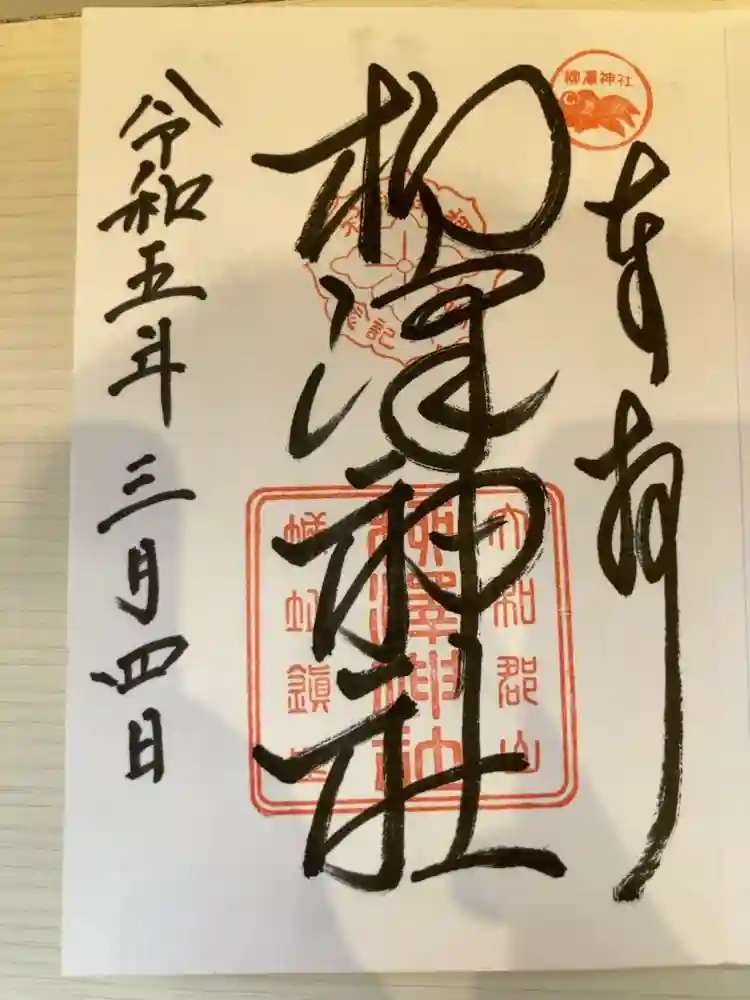 奉拝
柳澤神社
柳澤神社
大和郡山
柳澤神社
城址鎮座
令和五年三月四日